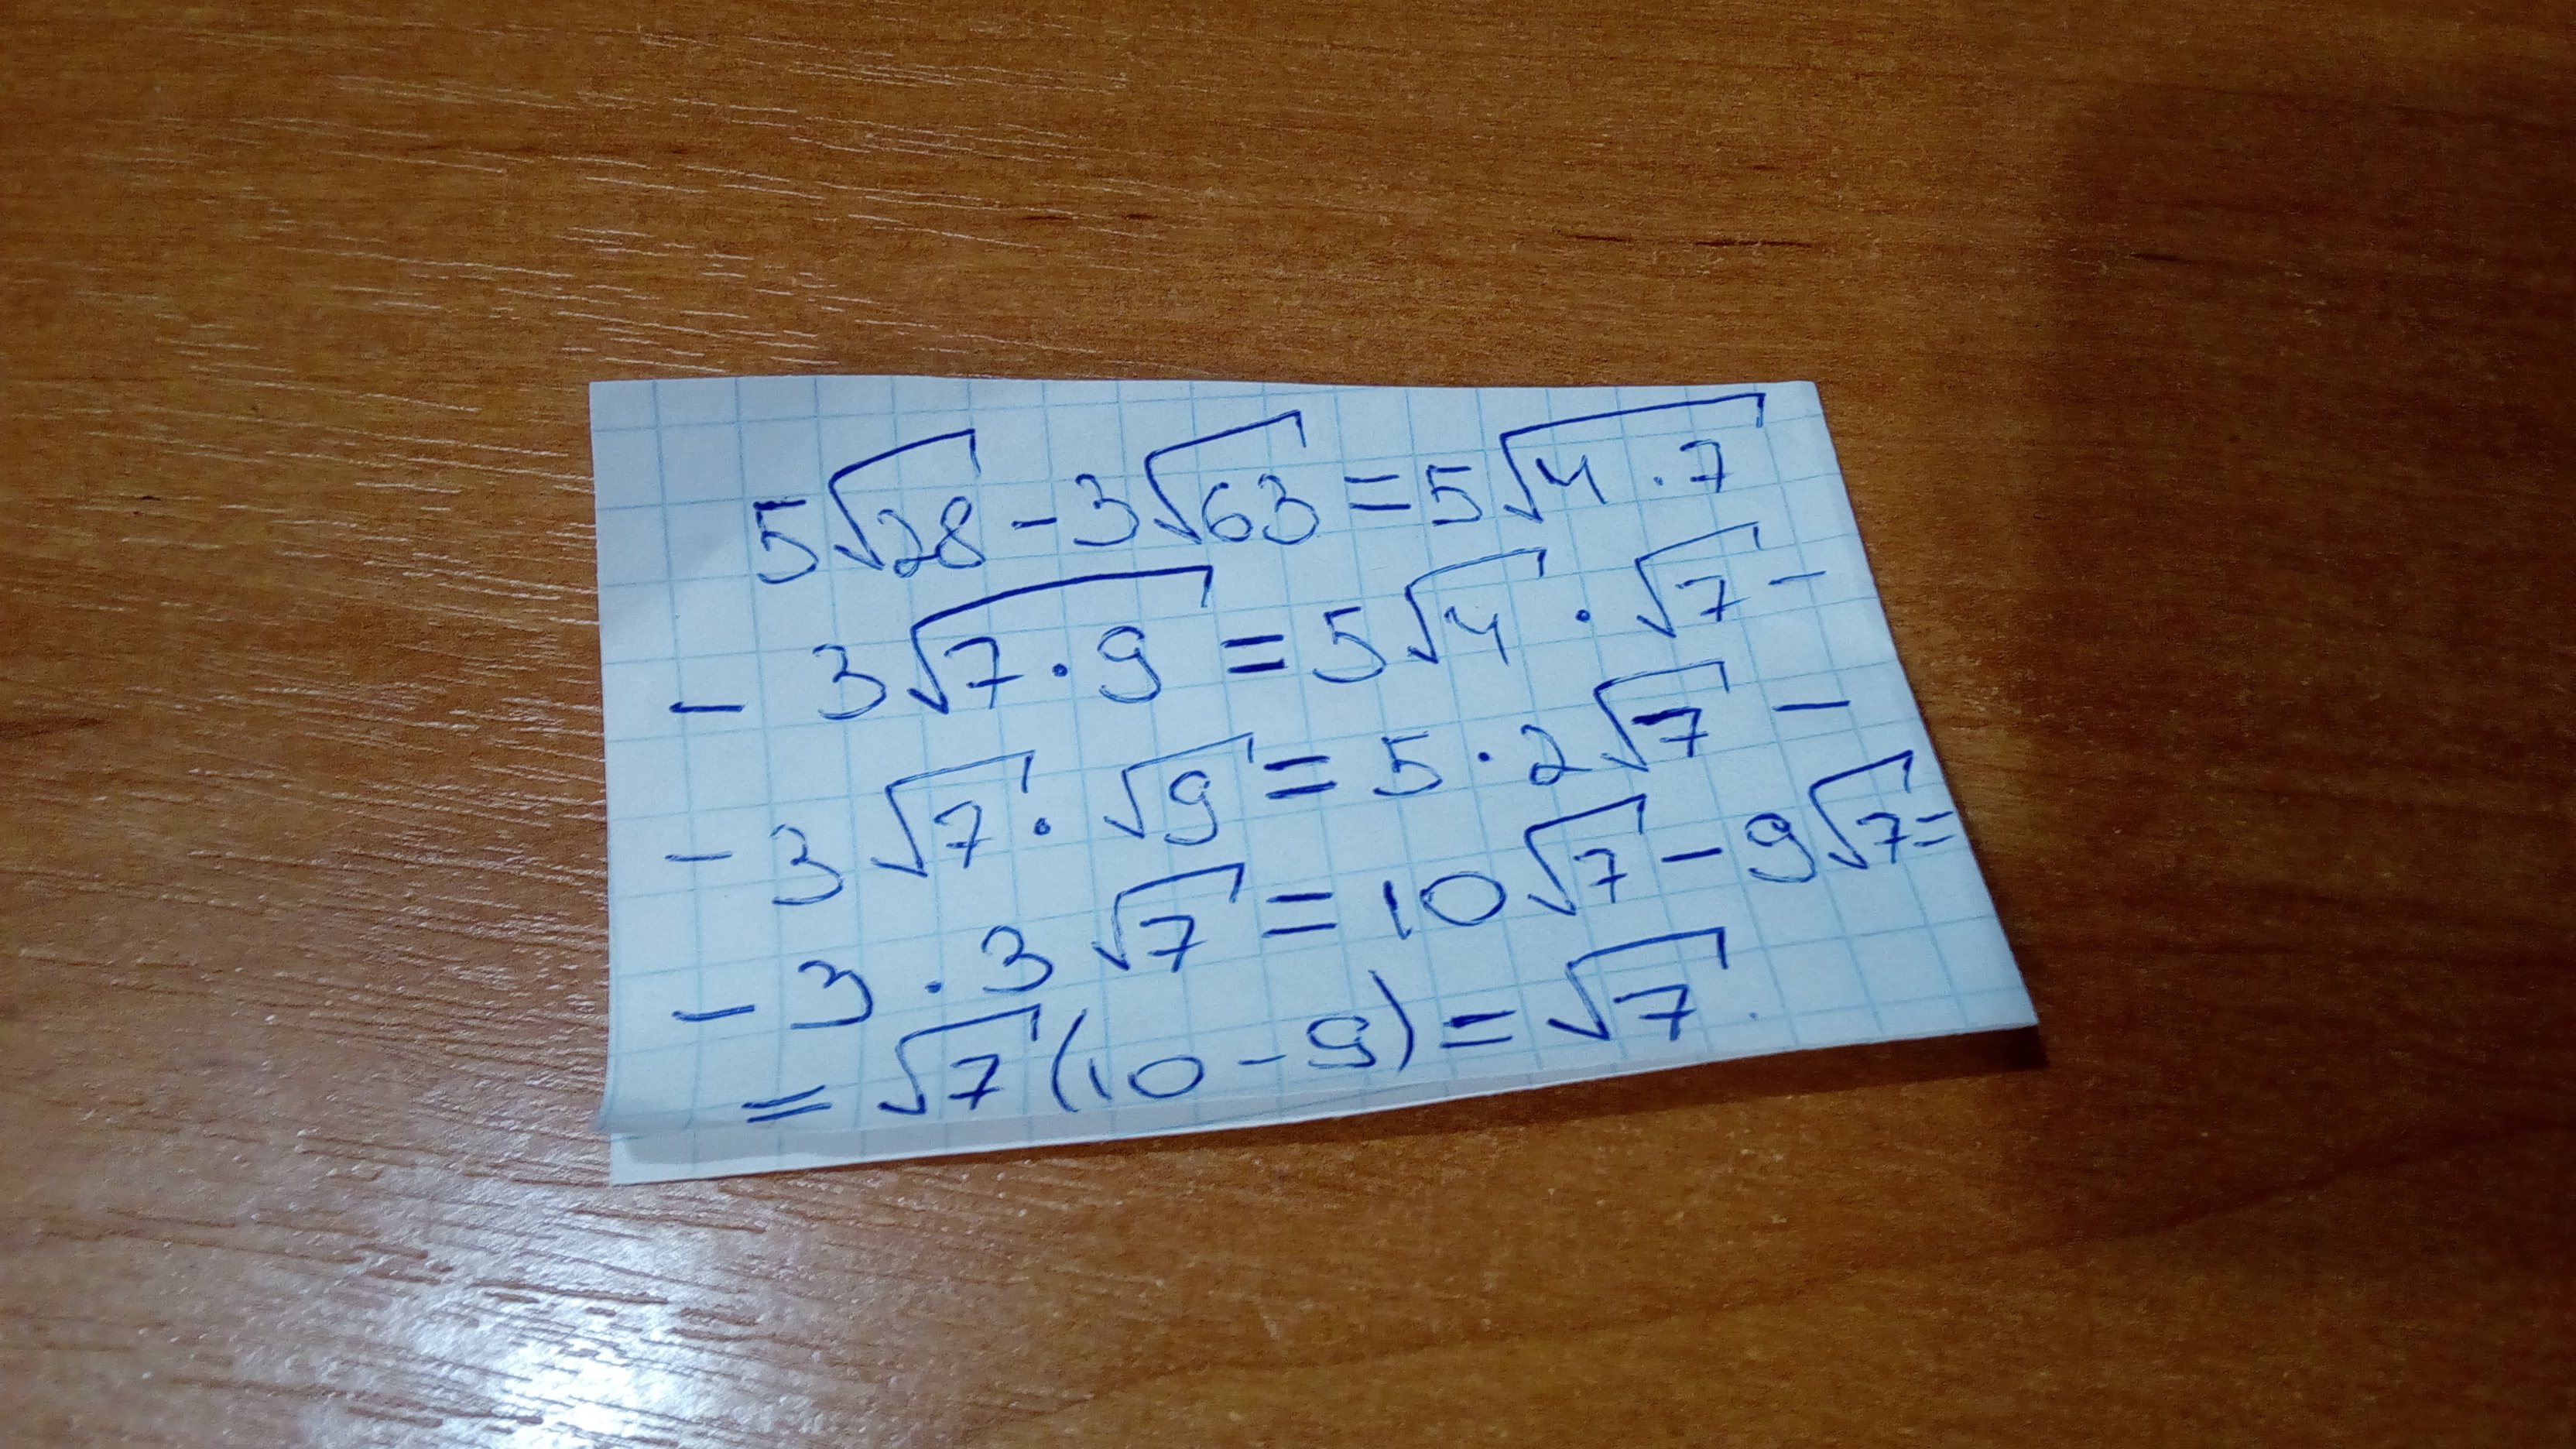 5√28 - 3√63 = 5√4 · 7
- 3√7 · 9 = 5√4 · √7 -
- 3√7 · √9 = 5 · 2√7 -
- 3 · 3√7 = 10√7 - 9√7 =
= √7(10 - 9) = √7.